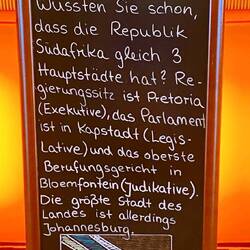 Wussten Sie schon,
dass die Republik
Südafrika gleich 3
Hauptstädte hat? Re-
gierungssitz ist Pretoria
(Exekutive), das Parlament
ist in Kapstadt (Legis-
lative) und das oberste
Berufungsgericht in
Bloemfontein (Judikative).
Die größte Stadt des
Landes ist allerdings
Johannesburg.